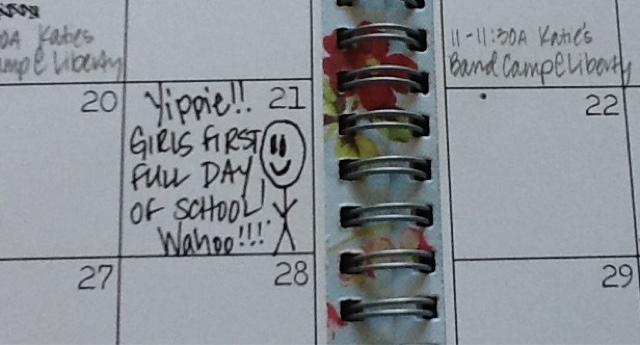 0A Katies
amp@Liberty
11-11:30A Katie's
Band Camp@Liberty
20
21
Yippie!!
GIRLS FIRST
FULL DAY
OF SCHOOL!
Wahoo!!!
22
27
28
29